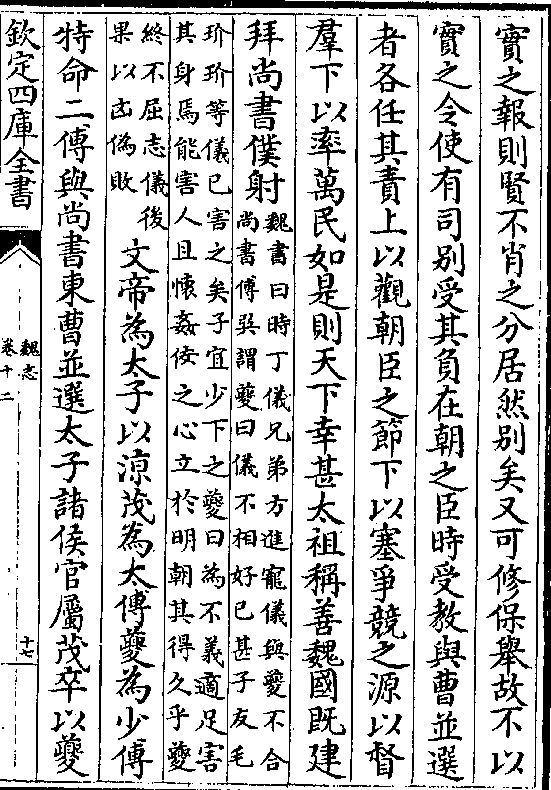 實之報則賢不肖之分居然别矣又可修保舉故不以
實之令使有司别受其負在朝之臣時受教與曹並選
者各任其責上以觀朝臣之節下以塞爭競之源以督
羣下以率萬民如是則天下幸甚太祖稱善魏國既建
拜尚書僕射
魏書曰時丁儀兄弟方進寵儀與夔不合
尚書傅巽謂夔曰儀不相好已甚子友毛
玠玠等儀已害之矣子宜少下之夔曰為不義適足害
其身焉能害人且懷姦佞之心立於明朝其得久乎夔
終不屈志儀後
果以凶偽敗
文帝為太子以涼茂為太傅夔為少傅
特命二傅與尚書東曹並選太子諸侯官屬茂卒以夔
欽定四庫全書
魏志
卷十二
十七